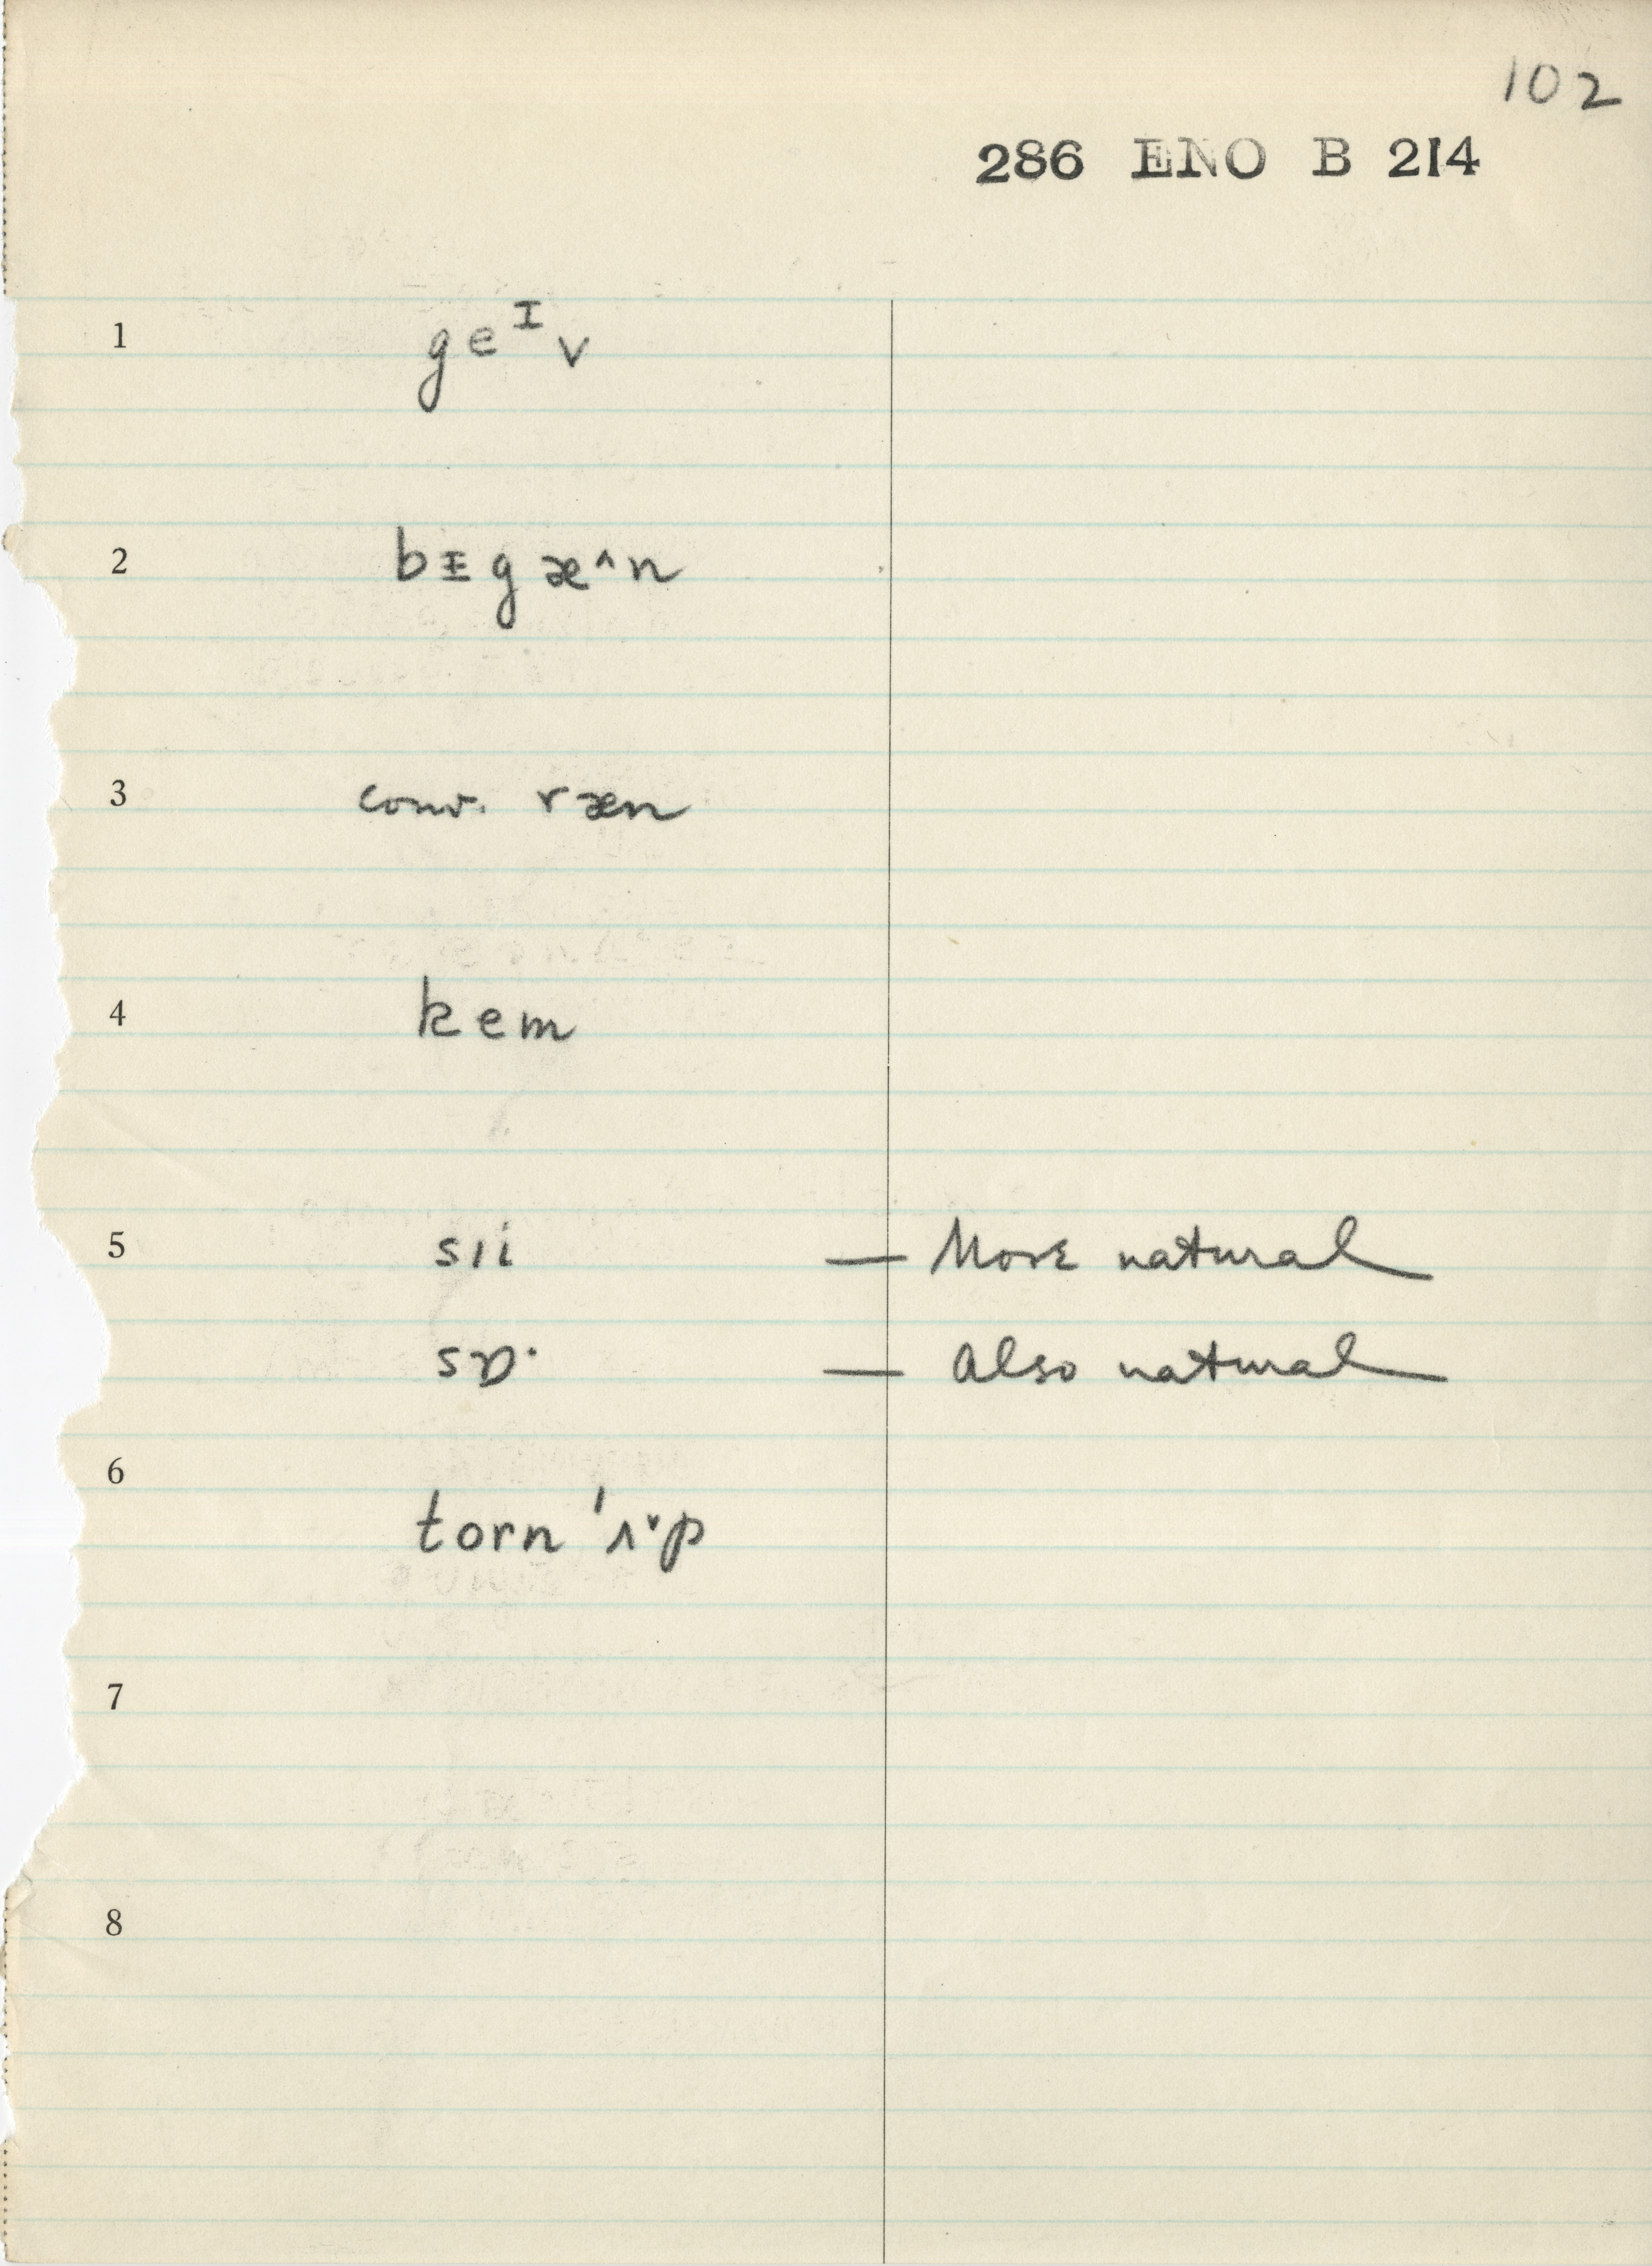 102
286 ENO B 214
1 geᴵv
2 bɪ̵gæ^n
3 conv. ræn
4 kem
5 sıi — More natural
sɒ· — Also natural
6 torn 'ʌ˅p
7
8